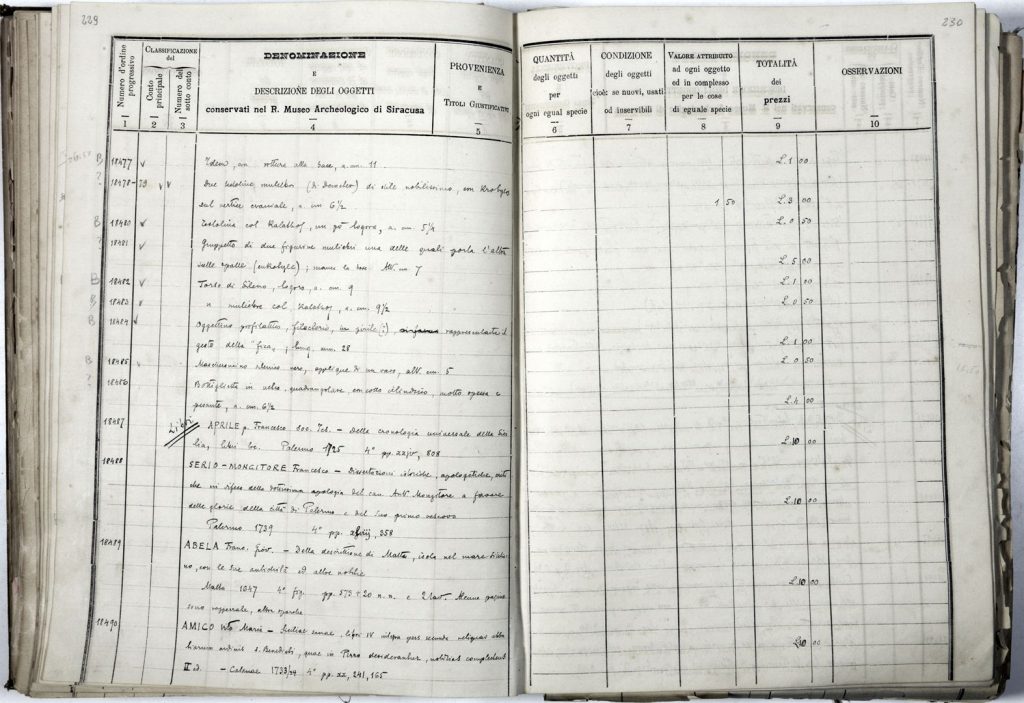 229
Numero d'ordine progressivo
CLASSIFICAZIONE del
Conto principale
Numero del sotto conto
DENOMINAZIONE
E
DESCRIZIONE DEGLI OGGETTI
conservati nel R. Museo Archeologico di Siracusa
PROVENIENZA
E
TITOLI GIUSTIFICATIVI
1 2 3 4 5
18477 Idem, con rottura alla base, a. cm. 11
18478-79 Due testoline muliebri (di Demeter) di stile nobilissimo, con Krobylos
sul vertice craniale, a. cm 6½
18480 Testolina col Kalathos, un pò logora, a. cm
18481 Gruppetto di due figurine muliebri una delle quali porta l'altra
sulle spalle ; manca la base Alt. cm. 7
18482 Torso di Sileno, logoro, a. cm. 9
18483 " muliebre col Kalathos, a. cm. 9½
18484 Oggettino profilattico, rappresentante il
gesto della "fica" ; lung. mm. 28
18485 Mascheroncino nero, applique di un vaso, alt. cm. 5
18486 Bottiglietta in vetro, quadrangolare, con collo cilindrico, molto spessa e
pesante, a. cm. 6½
Libri
18487 APRILE p. Francesco Soc. Jes. - Della cronologia universale della Sici-
lia, libri tre. Palermo 1725 4° pp. xxjv, 808
18488 SERIO-MONGITORE Francesco - Dissertazioni istoriche, apologetiche,
che in difesa della apologia del can. Ant. Mongitore a favore
delle glorie della città di Palermo e del suo primo vescovo
Palermo 1739 4° pp. 358
18489 ABELA Franc. Giov. - Della descrittione di Malta, isola nel mare Sicilia-
no, con le sue antichità ed altre notitie
Malta 1647 4° fig. pp. 573 + 20 n.n. e 2 tav. Alcune pagine
sono rappezzate, altre sporche.
18490 AMICO Vito Maria - Siciliae sacrae, libri IV integra pars secunda reliquas abba-
tiarum ordinis S. Benedicti, quae in Pirro desiderantur, notitias complectens
II ed. - Catanae 1733/34 4° pp. xx, 241, 165
230
QUANTITÀ
degli oggetti
per
ogni egual specie
CONDIZIONE
degli oggetti
cioè: se nuovi, usati
od inservibili
VALORE ATTRIBUITO
ad ogni oggetto
ed in complesso
per le cose
di eguale specie
TOTALITÀ
dei
prezzi
OSSERVAZIONI
6 7 8 9 10
L. 1 00
1 50 L. 3 00
L. 0 50
L. 5 00
L. 1 00
L. 0 50
L. 1 00
L. 0 50
L. 4 00
L. 10 00
L. 10 00
L. 10 00
L. 10 00